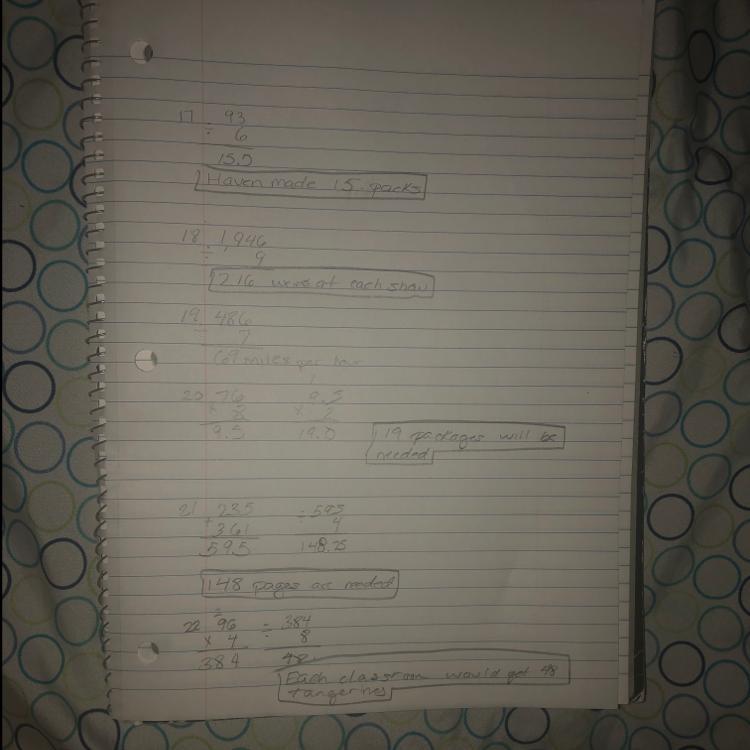 17 ÷ 93
6
15.5
Haven made 15 packs
18 ÷ 1,946
9
216 were at each show
19 486
7
69 miles per hour
20 76 9.5
× 8 × 2
9.5 19.0
19 packages will be
needed
21 235 ÷ 595
+ 361 4
595 148.25
148 pages are needed
2
22 96 ÷ 384
× 4 8
384 48
Each classroom would get 48
tangerines